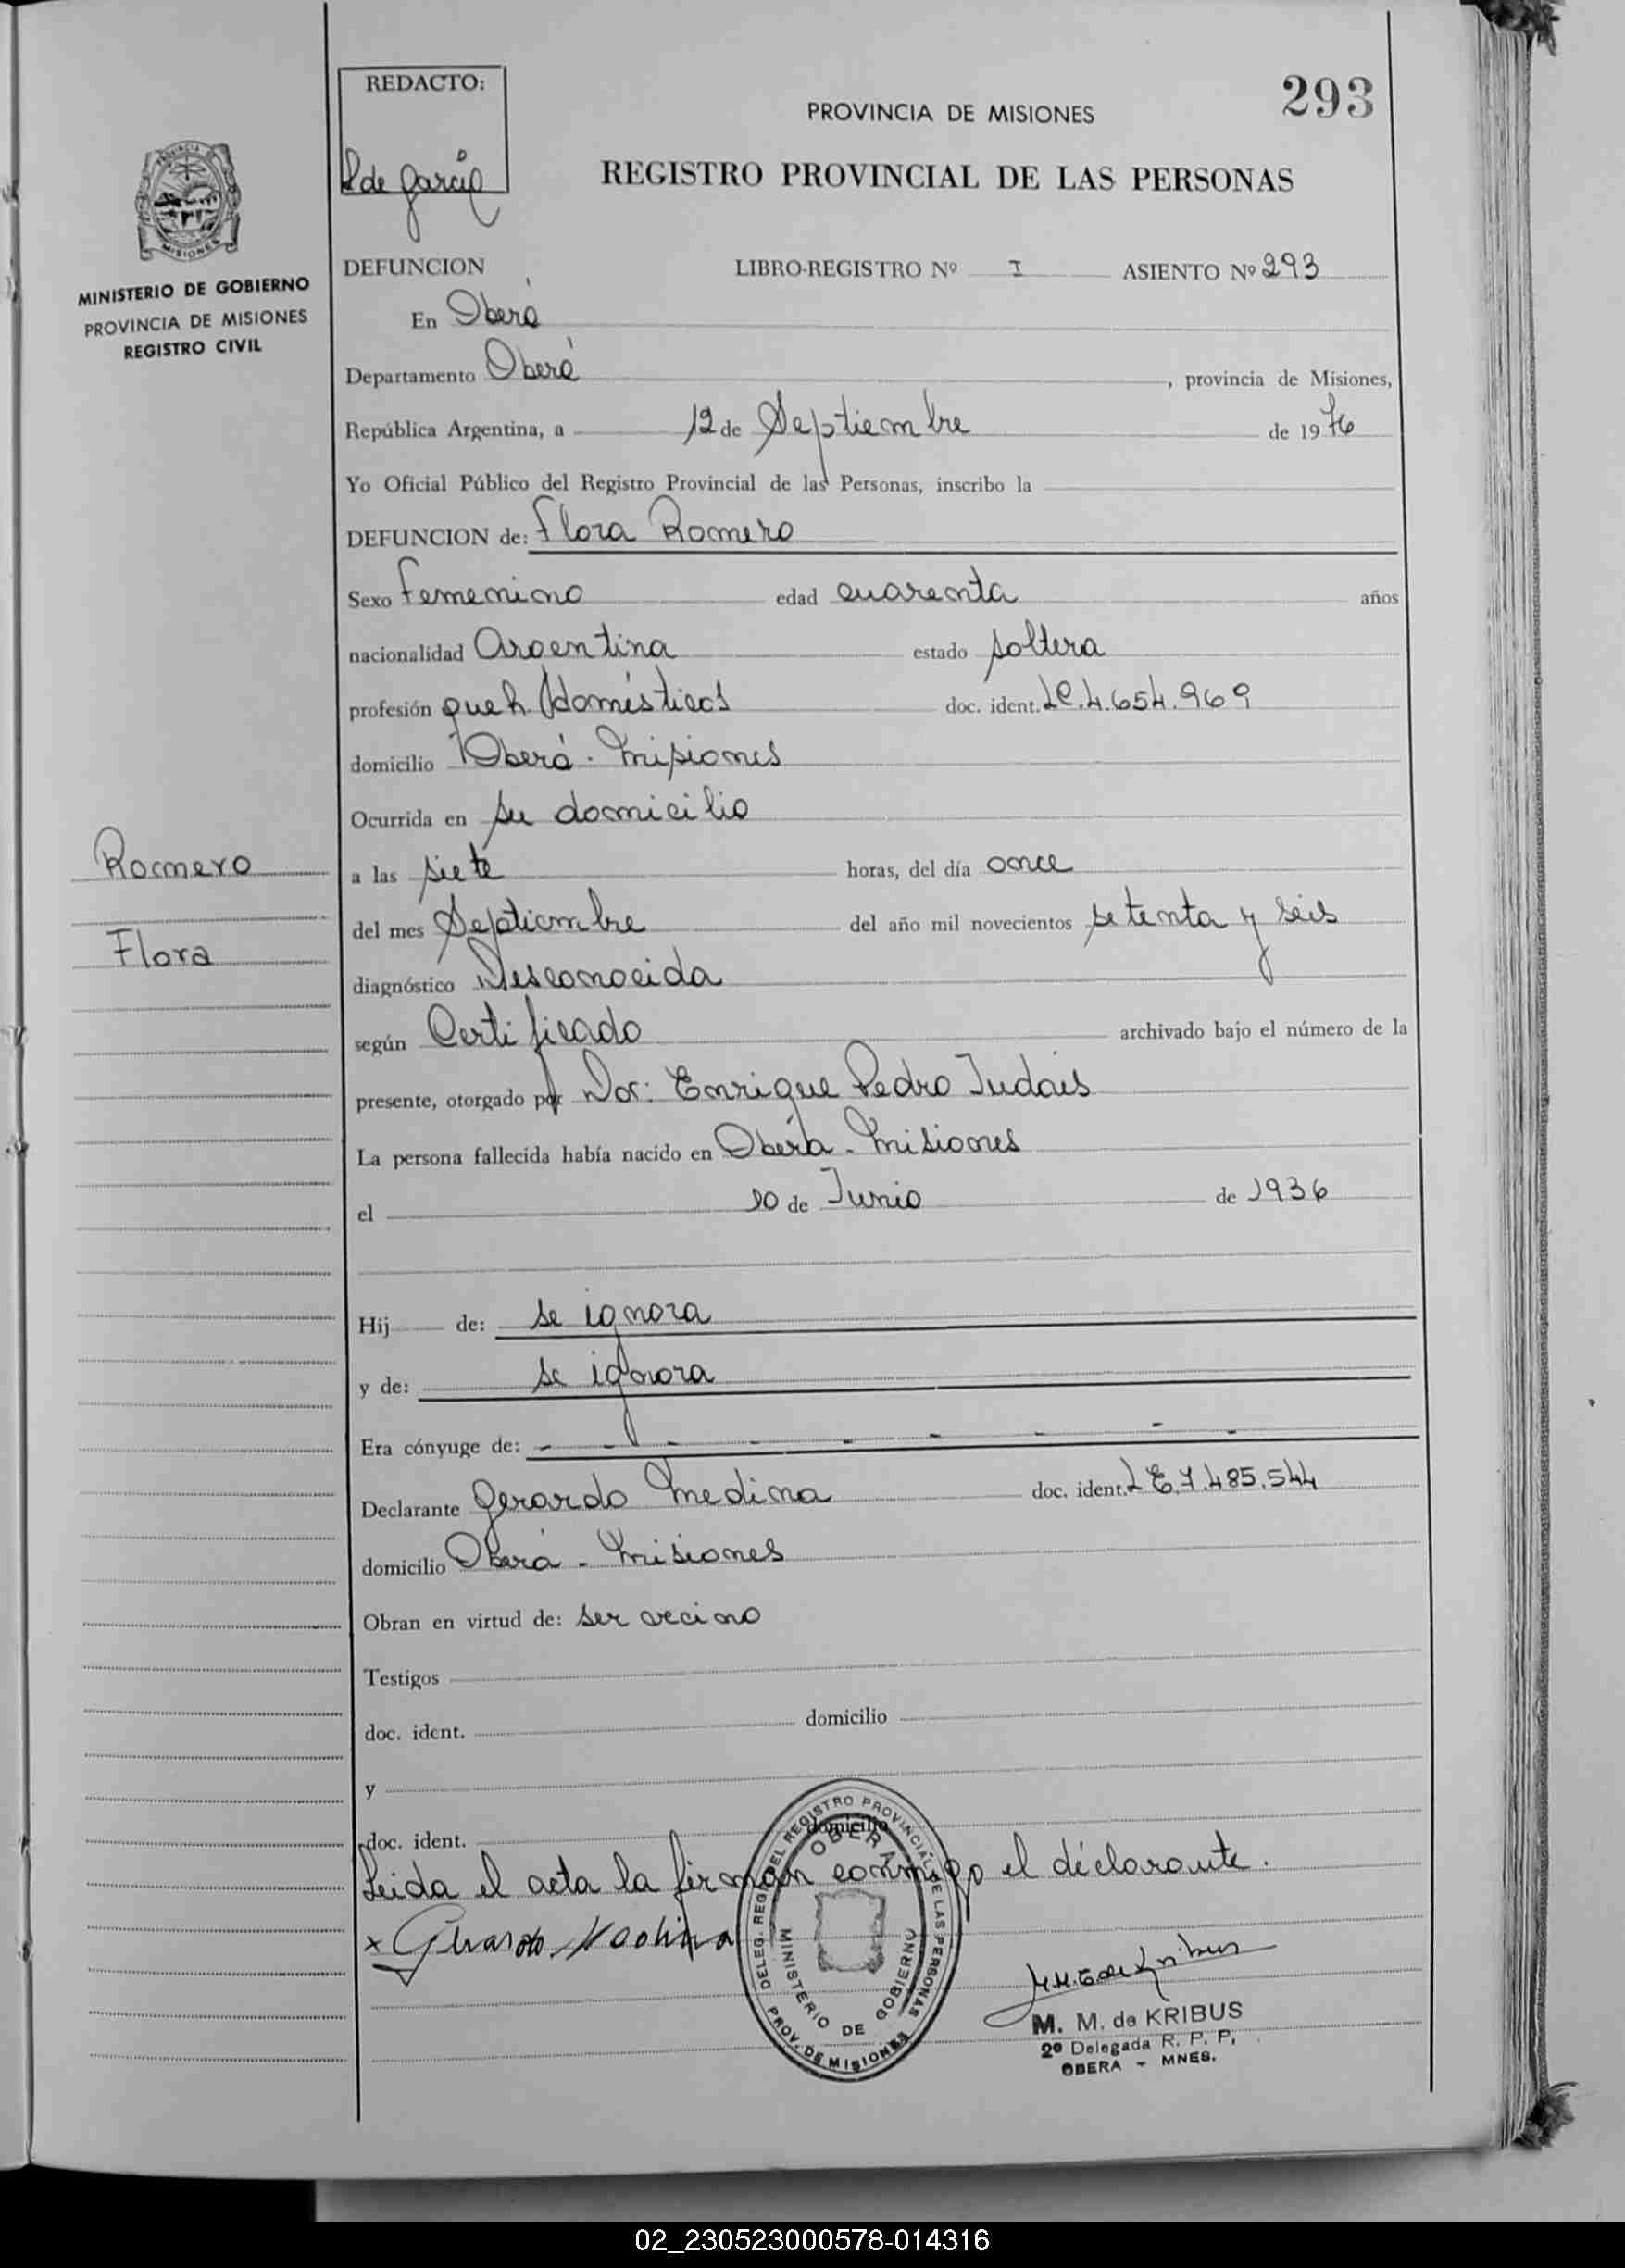 REDACTO:
293
PROVINCIA DE MISIONES
L de Garcia
REGISTRO PROVINCIAL DE LAS PERSONAS
MISIONES
MINISTERIO DE GOBIERNO
PROVINCIA DE MISIONES
REGISTRO CIVIL
DEFUNCION LIBRO-REGISTRO Nº I ASIENTO Nº 293
En Oberá
Departamento Oberá, provincia de Misiones,
República Argentina, a 12 de Septiembre de 1976
Yo Oficial Público del Registro Provincial de las Personas, inscribo la
DEFUNCION de: Flora Romero
Sexo Femenino edad cuarenta años
nacionalidad Argentina estado soltera
profesión queh. domésticos doc. ident. LC.4.654.969
domicilio Oberá - Misiones
Ocurrida en su domicilio
Romero
a las siete horas, del día once
del mes Septiembre del año mil novecientos setenta y seis
Flora
diagnóstico Desconocida
según Certificado archivado bajo el número de la
presente, otorgado por Dor: Enrique Pedro Judais
La persona fallecida había nacido en Oberá - Misiones
el 10 de Junio de 1936
Hij de: se ignora
y de: se ignora
Era cónyuge de: - - - - - - - -
Declarante Gerardo Medina doc. ident. LE.7.485.544
domicilio Oberá - Misiones
Obran en virtud de: ser vecino
Testigos
doc. ident. domicilio
y
doc. ident. domicilio
Leida el acta la firman conmigo el declarante.
x Gerardo Medina
DELEG. REG. DEL REGISTRO PROVINCIAL DE LAS PERSONAS
OBERA
MINISTERIO DE GOBIERNO
PROV. DE MISIONES
M. M. de KRIBUS
2º Delegada R. P. P.
OBERA - MNES.
02_230523000578-014316